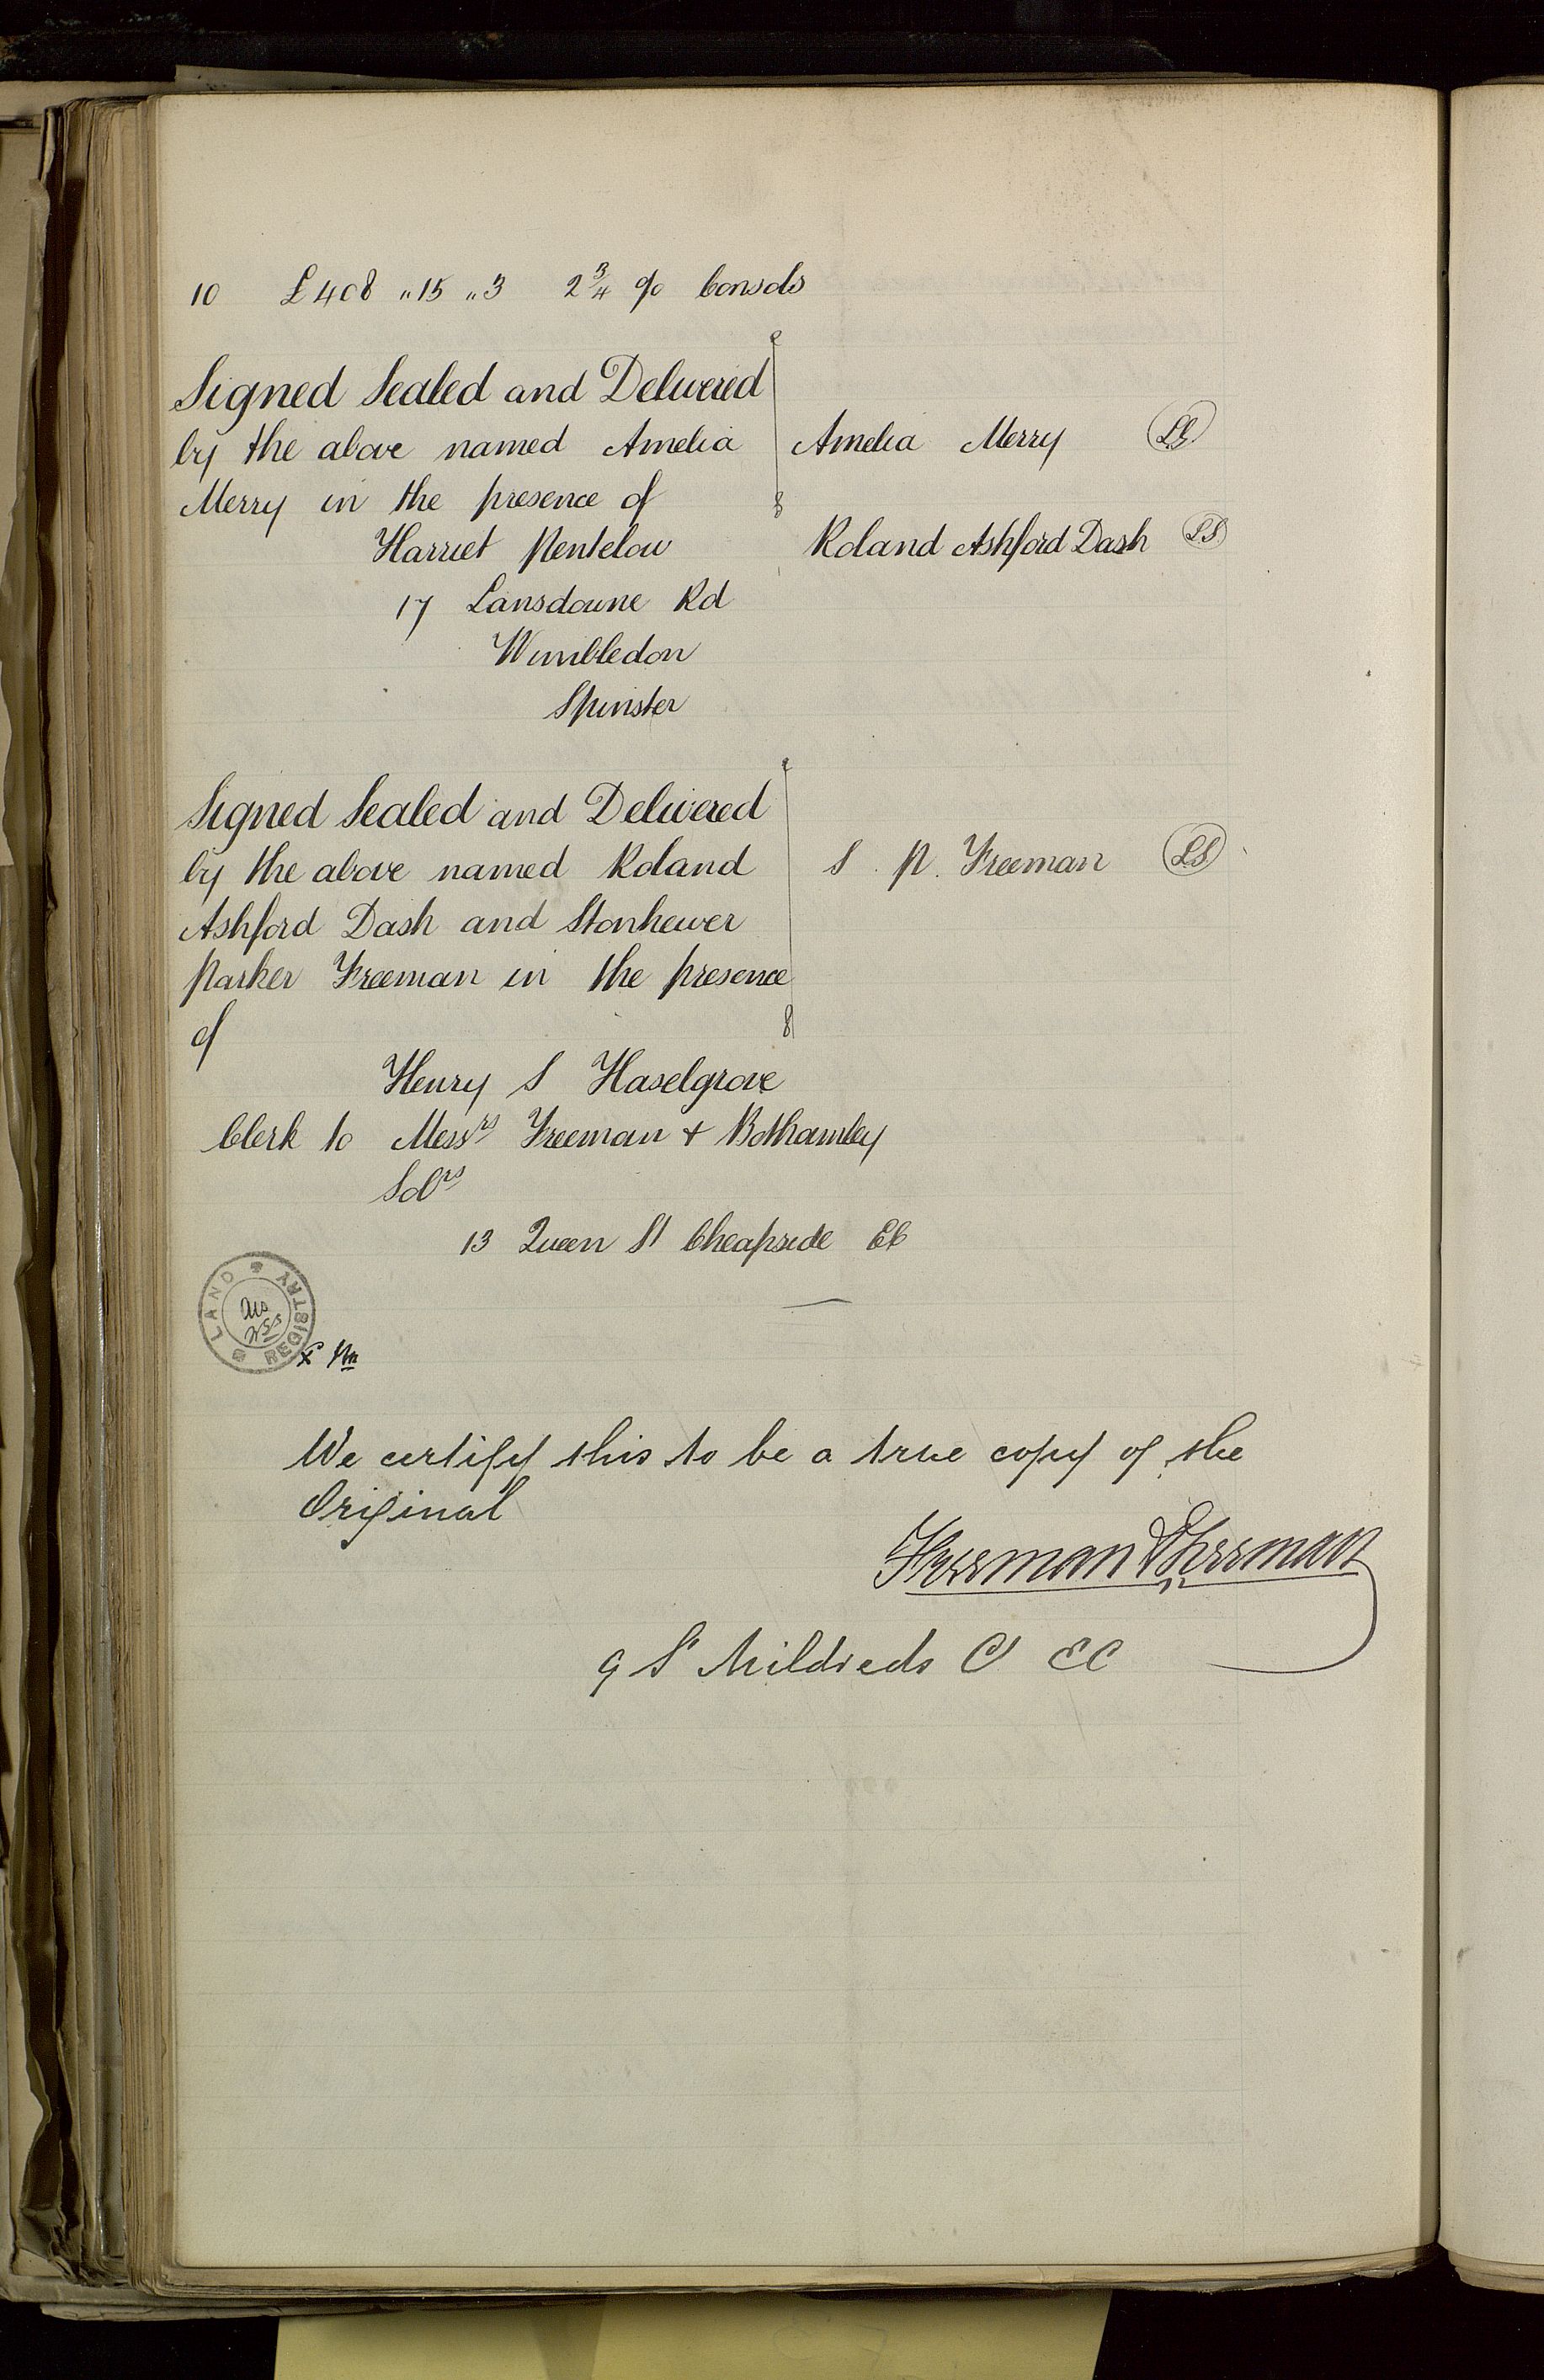 10 £408 〃15 〃3 2¾ % Consols
Signed Sealed and Delivered
by the above named Amelia
Merry in the presence of
Amelia Merry LS
Harriet Pentelow
Roland Ashford Dash LS
17 Lansdowne Rd
Wimbledon
Spinster
Signed Sealed and Delivered
by the above named Roland
Ashford Dash and Stonhewer
Parker Freeman in the presence
of
S. P. Freeman LS
Henry S Haselgrove
Clerk to Messrs Freeman & Bothamley
Solrs
13 Queen St Cheapside EC
LAND REGISTRY
We certify this to be a true copy of the
Original
Freeman & Freeman
9 St Mildreds Ct EC